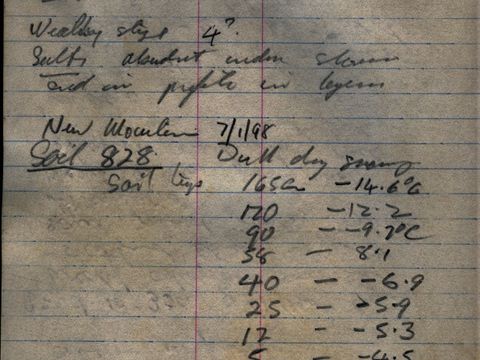 Weathering stage 4?
Salts abundant under stones
and in profile in layers
New Mountain 7/1/98
Soil 828. Dull day snowing
Soil temps 165cm -14.6°C
120 -12.2
90 - -9.7°C
58 - 8.1
40 - -6.9
25 - -5.9
12 - -5.3
5 - -4.5